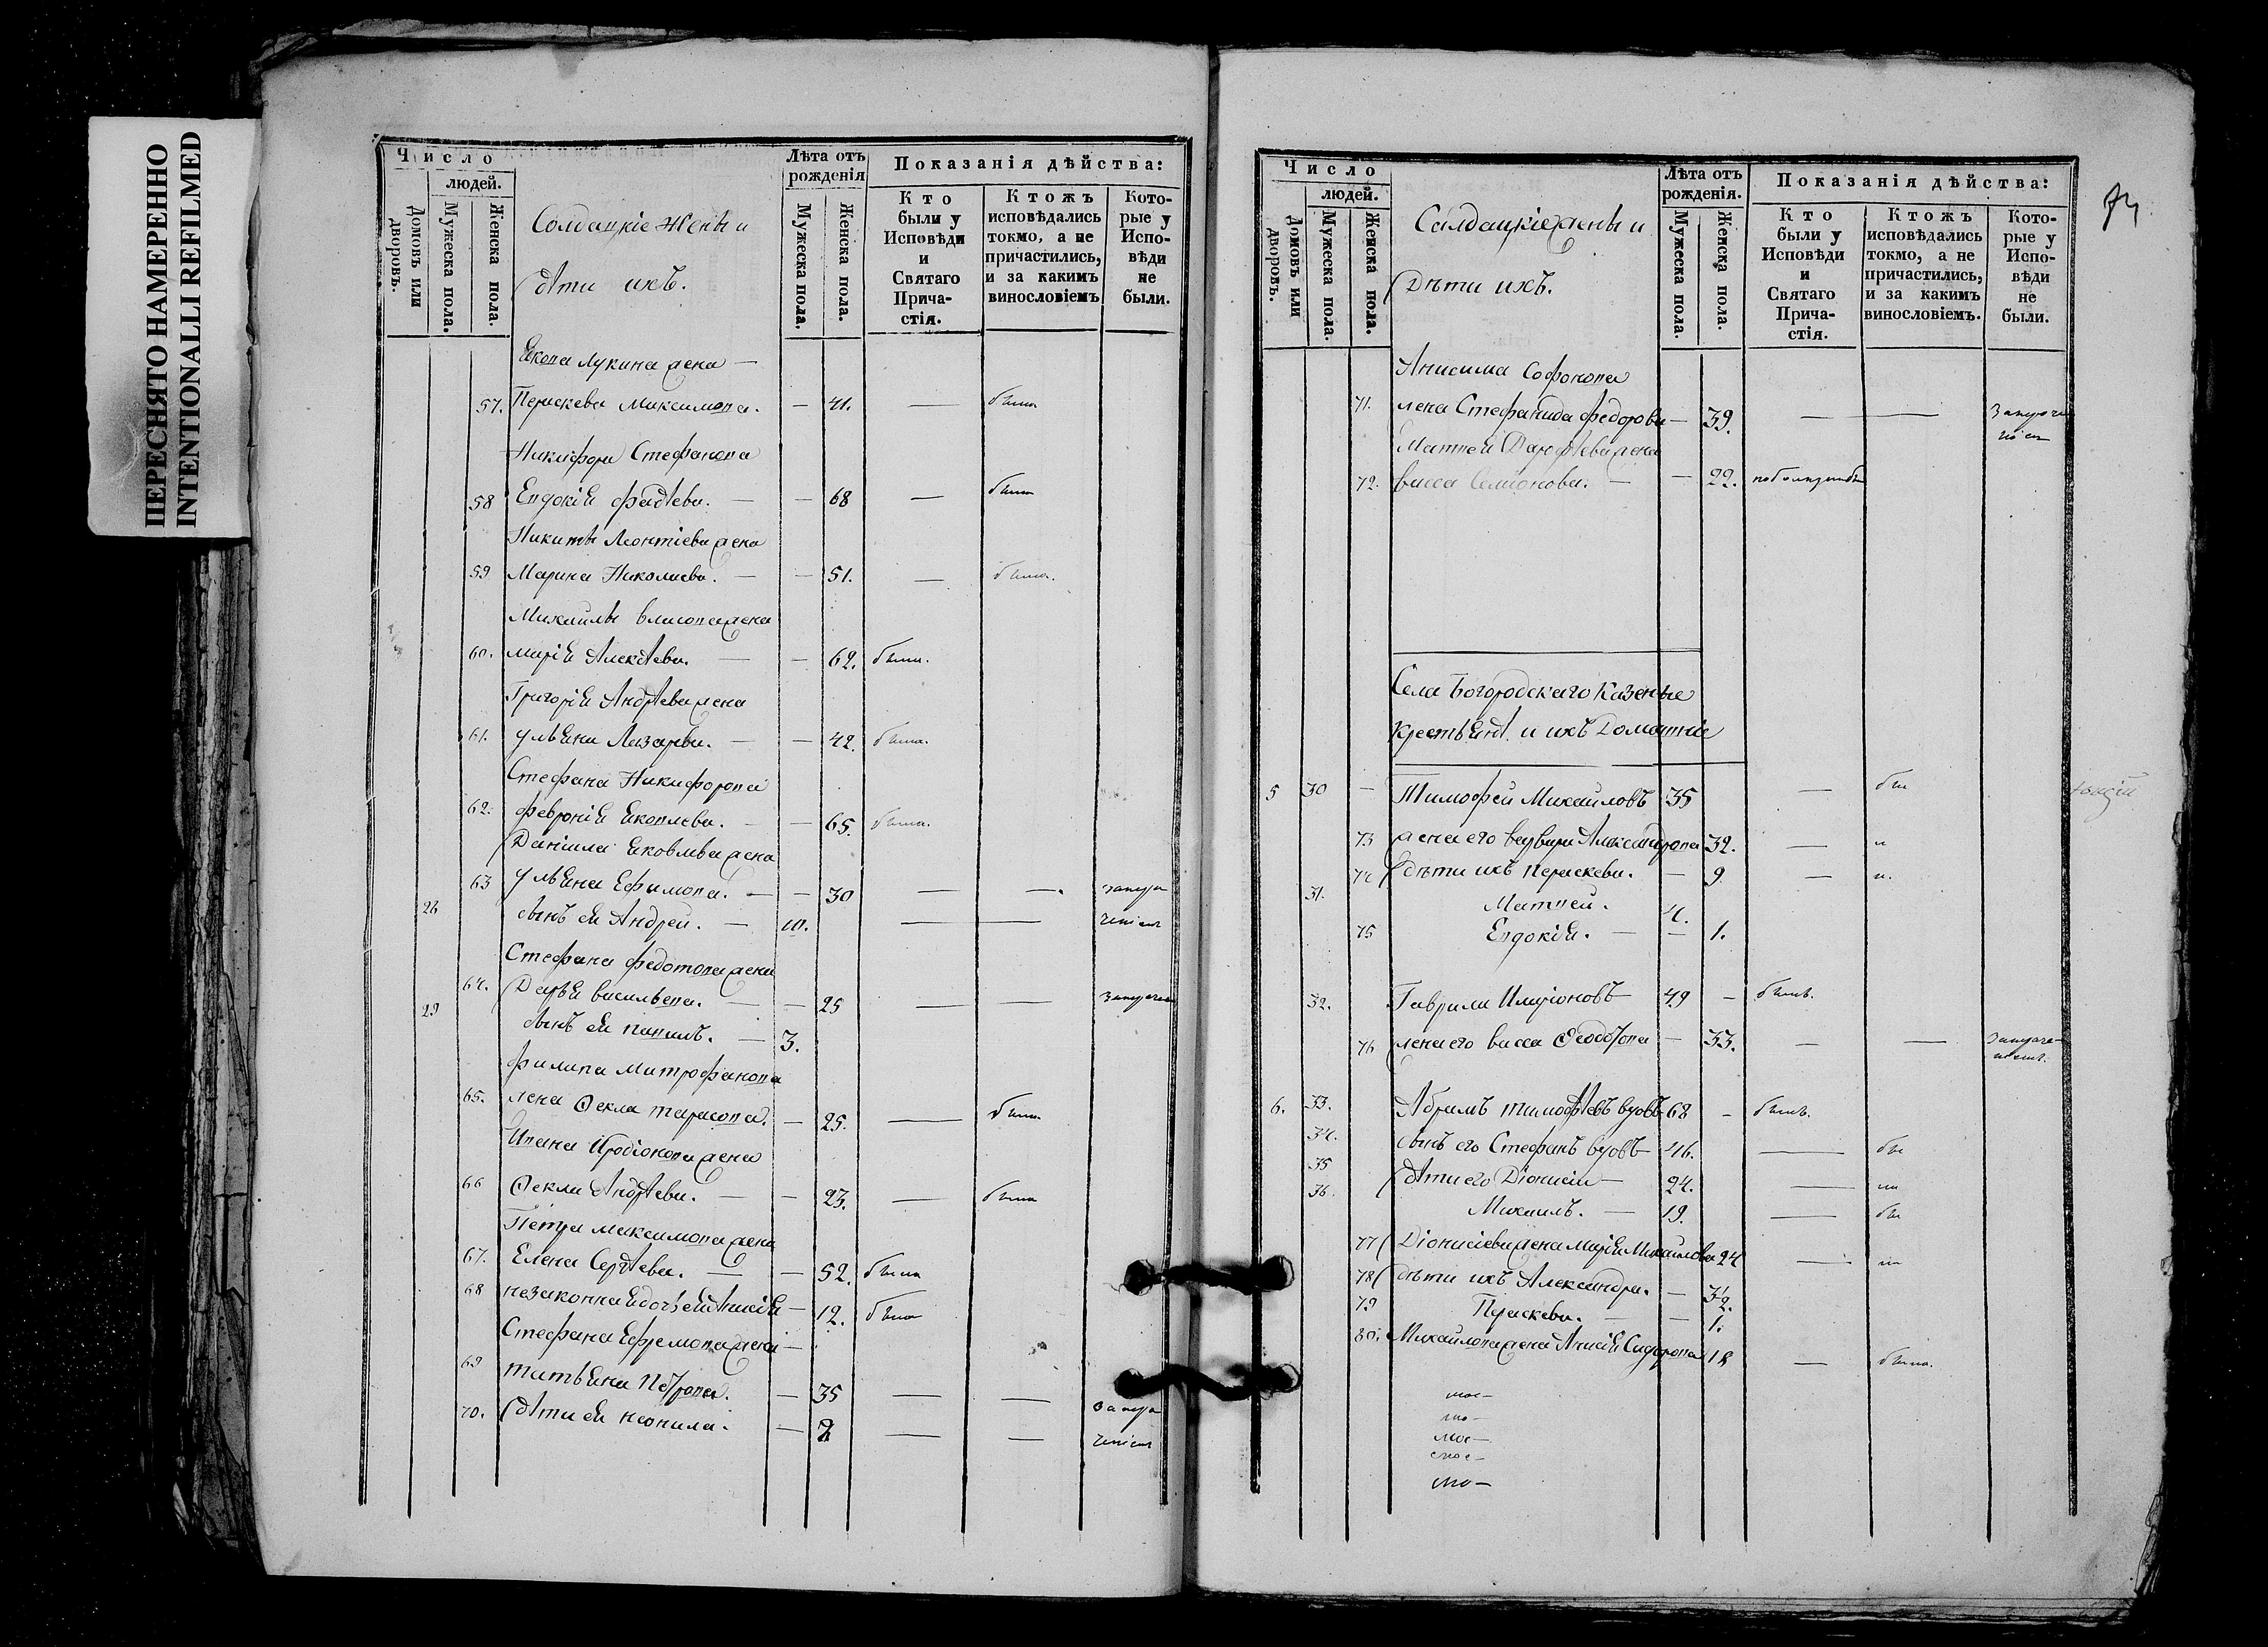 ПЕРЕСНЯТО НАМЕРЕННО
INTENTIONALLI REFILMED
Число
людей.
Домовъ или дворовъ.
Мужеска пола.
Женска пола.
Солдацкіе Жены и
дѣти ихъ.
Лѣта отъ рожденія
Мужеска пола.
Женска пола.
Показанія дѣйства:
Кто были у Исповѣди и Святаго Прича-стія.
Ктожъ исповѣдались токмо, а не причастились, и за какимъ винословіемъ
Кото-рые у Испо-вѣди не были.
Якова Лукина жена —
57. Параскева Максимова. — 41. — была
Никифора Стефанова
58 Евдокія Фадѣева. — — 68 — была
Никиты Леонтіева жена
59 Марина Николаева. — — 51. — была.
Михаилы Власова жена
60. Марія Алекѣева. — — 62. была.
Григорія Андрѣева жена
61. Ульяна Лазарева. — — 42. была.
Стефана Никифорова
62. Февронія Яковлева. — — 65. была.
Даніила Яковлева жена
63 Ульяна Ефимова. — — 30 — —
28 сынъ ея Андрей. — 10. — —
Стефана Федотова жена
64. Дарья Васильева. — — 25 — —
29 сынъ ея Павилъ. — 3.
Филипа Митрофанова
65. жена Ѳекла Тарасова. — 25. — была
Ивана Иродіонова жена
66 Ѳекла Андрѣева. — — 23. — была
Петра Максимова жена
67. Елена Сергѣева. — — 52. была
68 незаконная дочь ея Анисія — 12. была
Стефана Ефремова жена —
69 Татьяна Петрова. — 35 — —
70. дѣти ея Неонила. — 2 — —
Число
людей.
Домовъ или дворовъ.
Мужеска пола.
Женска пола.
Салдацкіе жены и
Дѣти ихъ.
Лѣта отъ рожденія.
Мужеска пола.
Женска пола.
Показанія дѣйства:
Кто были у Исповѣди и Святаго Прича-стія.
Ктожъ исповѣдались токмо, а не причастились, и за какимъ винословіемъ.
Кото-рые у Испо-вѣди не были.
Анисима Софонова
71. жена Стефанида Федорова — 39. — —
Матвея Дарофѣева жена
72. Васса Семіонова. — — 22.
Села Богородскаго Казеные
Крестьянѣ и ихъ Домашніе
5 30 — Тимофей Михайловъ 35 — бы
73 жена его Варвара Александрова 32. —
74 дѣти ихъ Параскева. — 9 —
31. Матвей. 4.
75 Евдокія. — — 1.
32. Гаврила Иларіоновъ 49 — былъ.
76 жена его Васса Ѳеодорова — 33. — —
6. 33. Абрамъ Тимофѣевъ вдовъ 68 — былъ.
34. сынъ его Стефанъ вдовъ 46. — бы
35 дѣти его Діонисій — 24. —
36. Михаилъ. — 19. — бы
77 Діонисіева жена Марія Михайлова 24 —
78 дѣти ихъ Александра. —
79 Параскева. — — 1.
80. Михайлова жена Анисія Сидорова 18 — была.